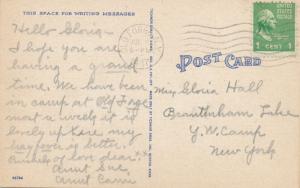 THIS SPACE FOR WRITING MESSAGES
Hello Gloria -
I hope you are
having a grand
time. We have been
in camp at Old Forge
most a week it is
lovely up here my
hay fever is better.
love dear.
Aunt Sue,
Aunt Carri
POST CARD
UNITED STATES POSTAGE
1 CENT 1
Miss Gloria Hall
Brantingham Lake
Y.W. Camp
New York